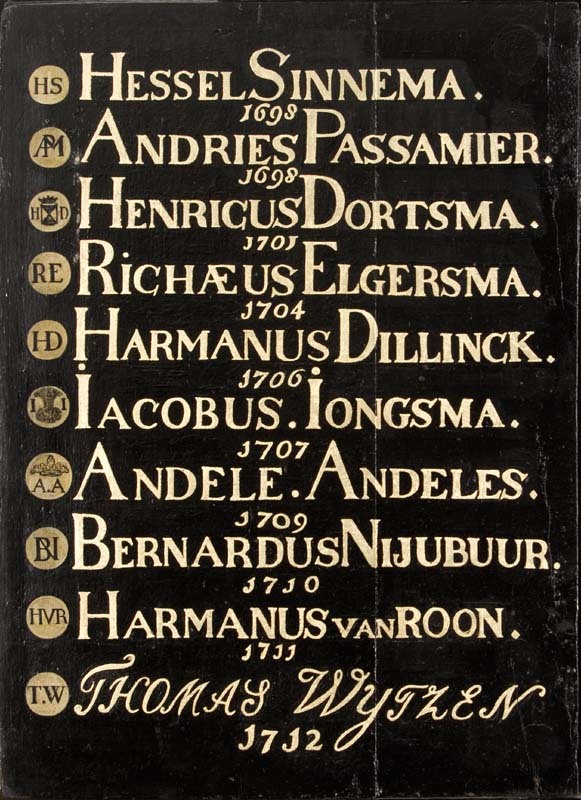 HS HESSEL SINNEMA.
1698
APM ANDRIES PASSAMIER.
1698
H D HENRICUS DORTSMA.
1701
RE RICHÆUS ELGERSMA.
1704
HD HARMANUS DILLINCK.
1706
I I IACOBUS. IONGSMA.
1707
A.A ANDELE. ANDELES.
1709
BN BERNARDUS NIJUBUUR.
1710
HVR HARMANUS VAN ROON.
1711
T.W THOMAS WYTZEN
1712